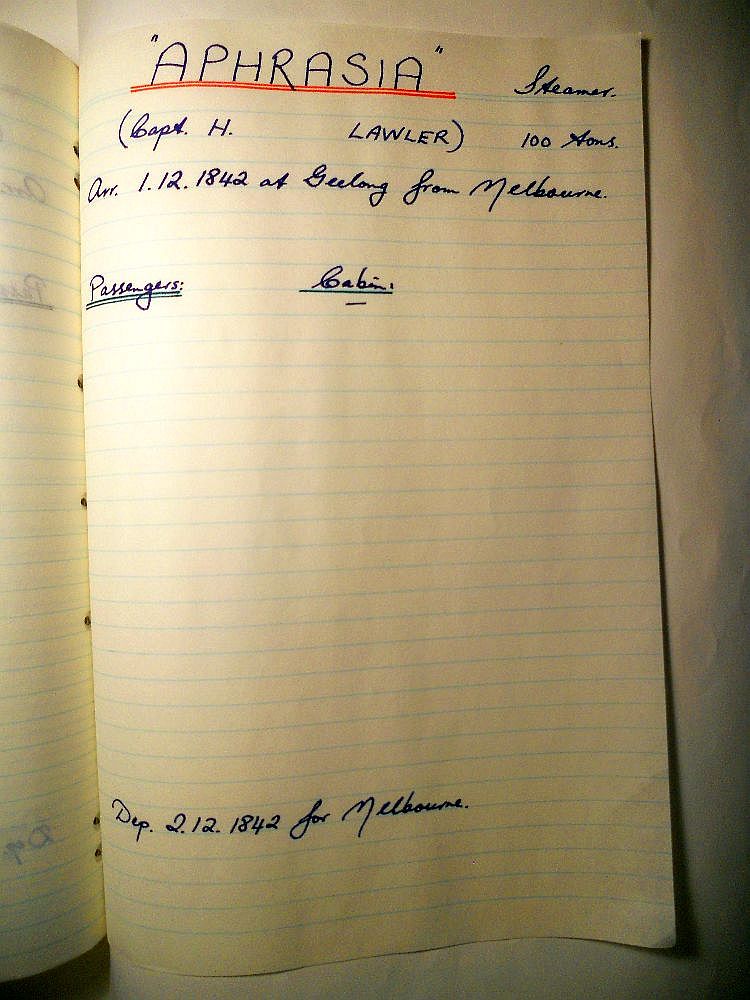 "APHRASIA" Steamer.
(Capt. H. LAWLER) 100 Tons.
Arr. 1.12.1842 at Geelong from Melbourne.
Passengers: Cabin:
Dep. 2.12.1842 for Melbourne.